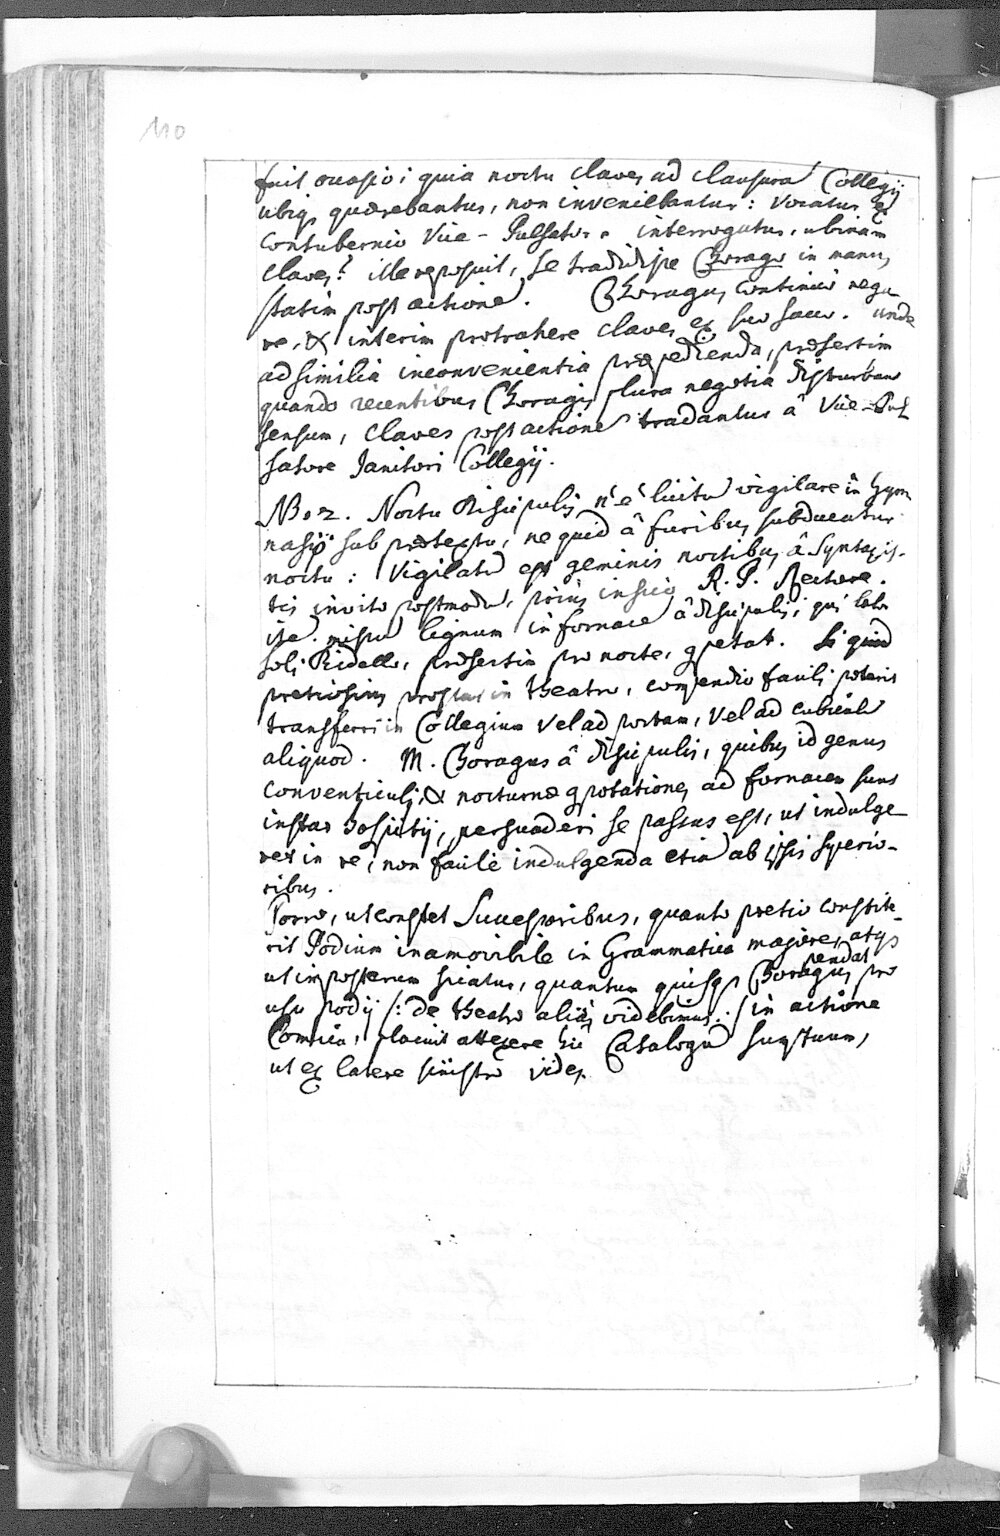 110
fuit occasio; quia noctu claves ad clausurã Collegij
ubiq quærebantur, non inveniebantur: Vocatus ex
Contubernio Vice-Pulsator. interrogatus, ubinam
claves? ille reposuit, se tradidisse Chorago in manus
statim post actionẽ. Choragus continuò nega
re, & interim protrahere claves ex suo sacco. unde
ad similia inconvenientia præpedienda, præsertim
quando recentibus Choragis plura negotia disturbant
sensum, claves post actionẽ tradantur â Vice-Pul
satore Janitori Collegij.
NB 2. Noctu Discipulis ñ ẽ licitũ vigilare in Gym
nasijs sub prætextu, ne quid â furibus subducatur
noctu: Vigilatũ est geminis noctibus â Syntaxis-
tis invito postmodũ, prius inscio R. P. Rectore.
ite. misso lignum in fornace â discipulis, qui
soli Pidello, præsertim pro nocte, competat. Si quid
pretiosius prostat in theatro, compendio facili poterit
transferri in Collegium vel ad portam, vel ad cubiculũ
aliquod. M. Choragus â discipulis, quibus id genus
conventiculi, & nocturnæ compotationes ad fornacem sunt
instar hospitij, persuaderi se passus est, ut indulge
ret in re, non facilè indulgenda etiã ab ipsis Superio-
ribus.
Porro, ut constet Successoribus, quanto pretio constite-
rit Podium inamovibile in Grammatica majore, atq
ut in posterum sciatur, quantum quisq Choragus pendat pro
usu podij /: de theatro aliàs videbimus :/ in actione
Comica, placuit attexere hîc Catalogũ sumptuum,
ut ex latere sinistro vides.